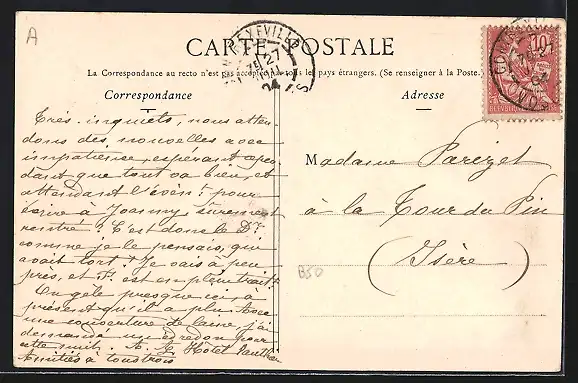 A
CARTE POSTALE
La Correspondance au recto n'est pas acceptée par tous les pays étrangers. (Se renseigner à la Poste.)
Correspondance
Adresse
Très inquiets, nous atten-
dons des nouvelles avec
impatience, espérant cepen-
dant que tout va bien, et
attendant l'évén.t pour
écrire à Joanny, sûrement
rentré ? C'est donc le Dr
comme je le pensais, qui
avait tort ! Je vais à peu
près, et F. est en plein trait.t
On gèle presque ici, à
présent qu'il a plu. Avec
une couverture de laine, j'ai
demandé un édredon pour
cette nuit. Hôtel
Amitiés à tous trois
Madame Parizet
à la Tour du Pin
(Isère)
B50
CONTREXEVILLE
21
04
10